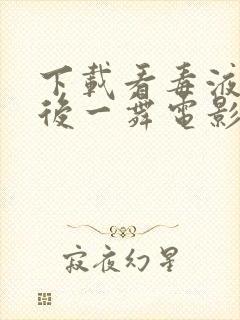 下載看毒液
後一舞電影
寂夜幻星